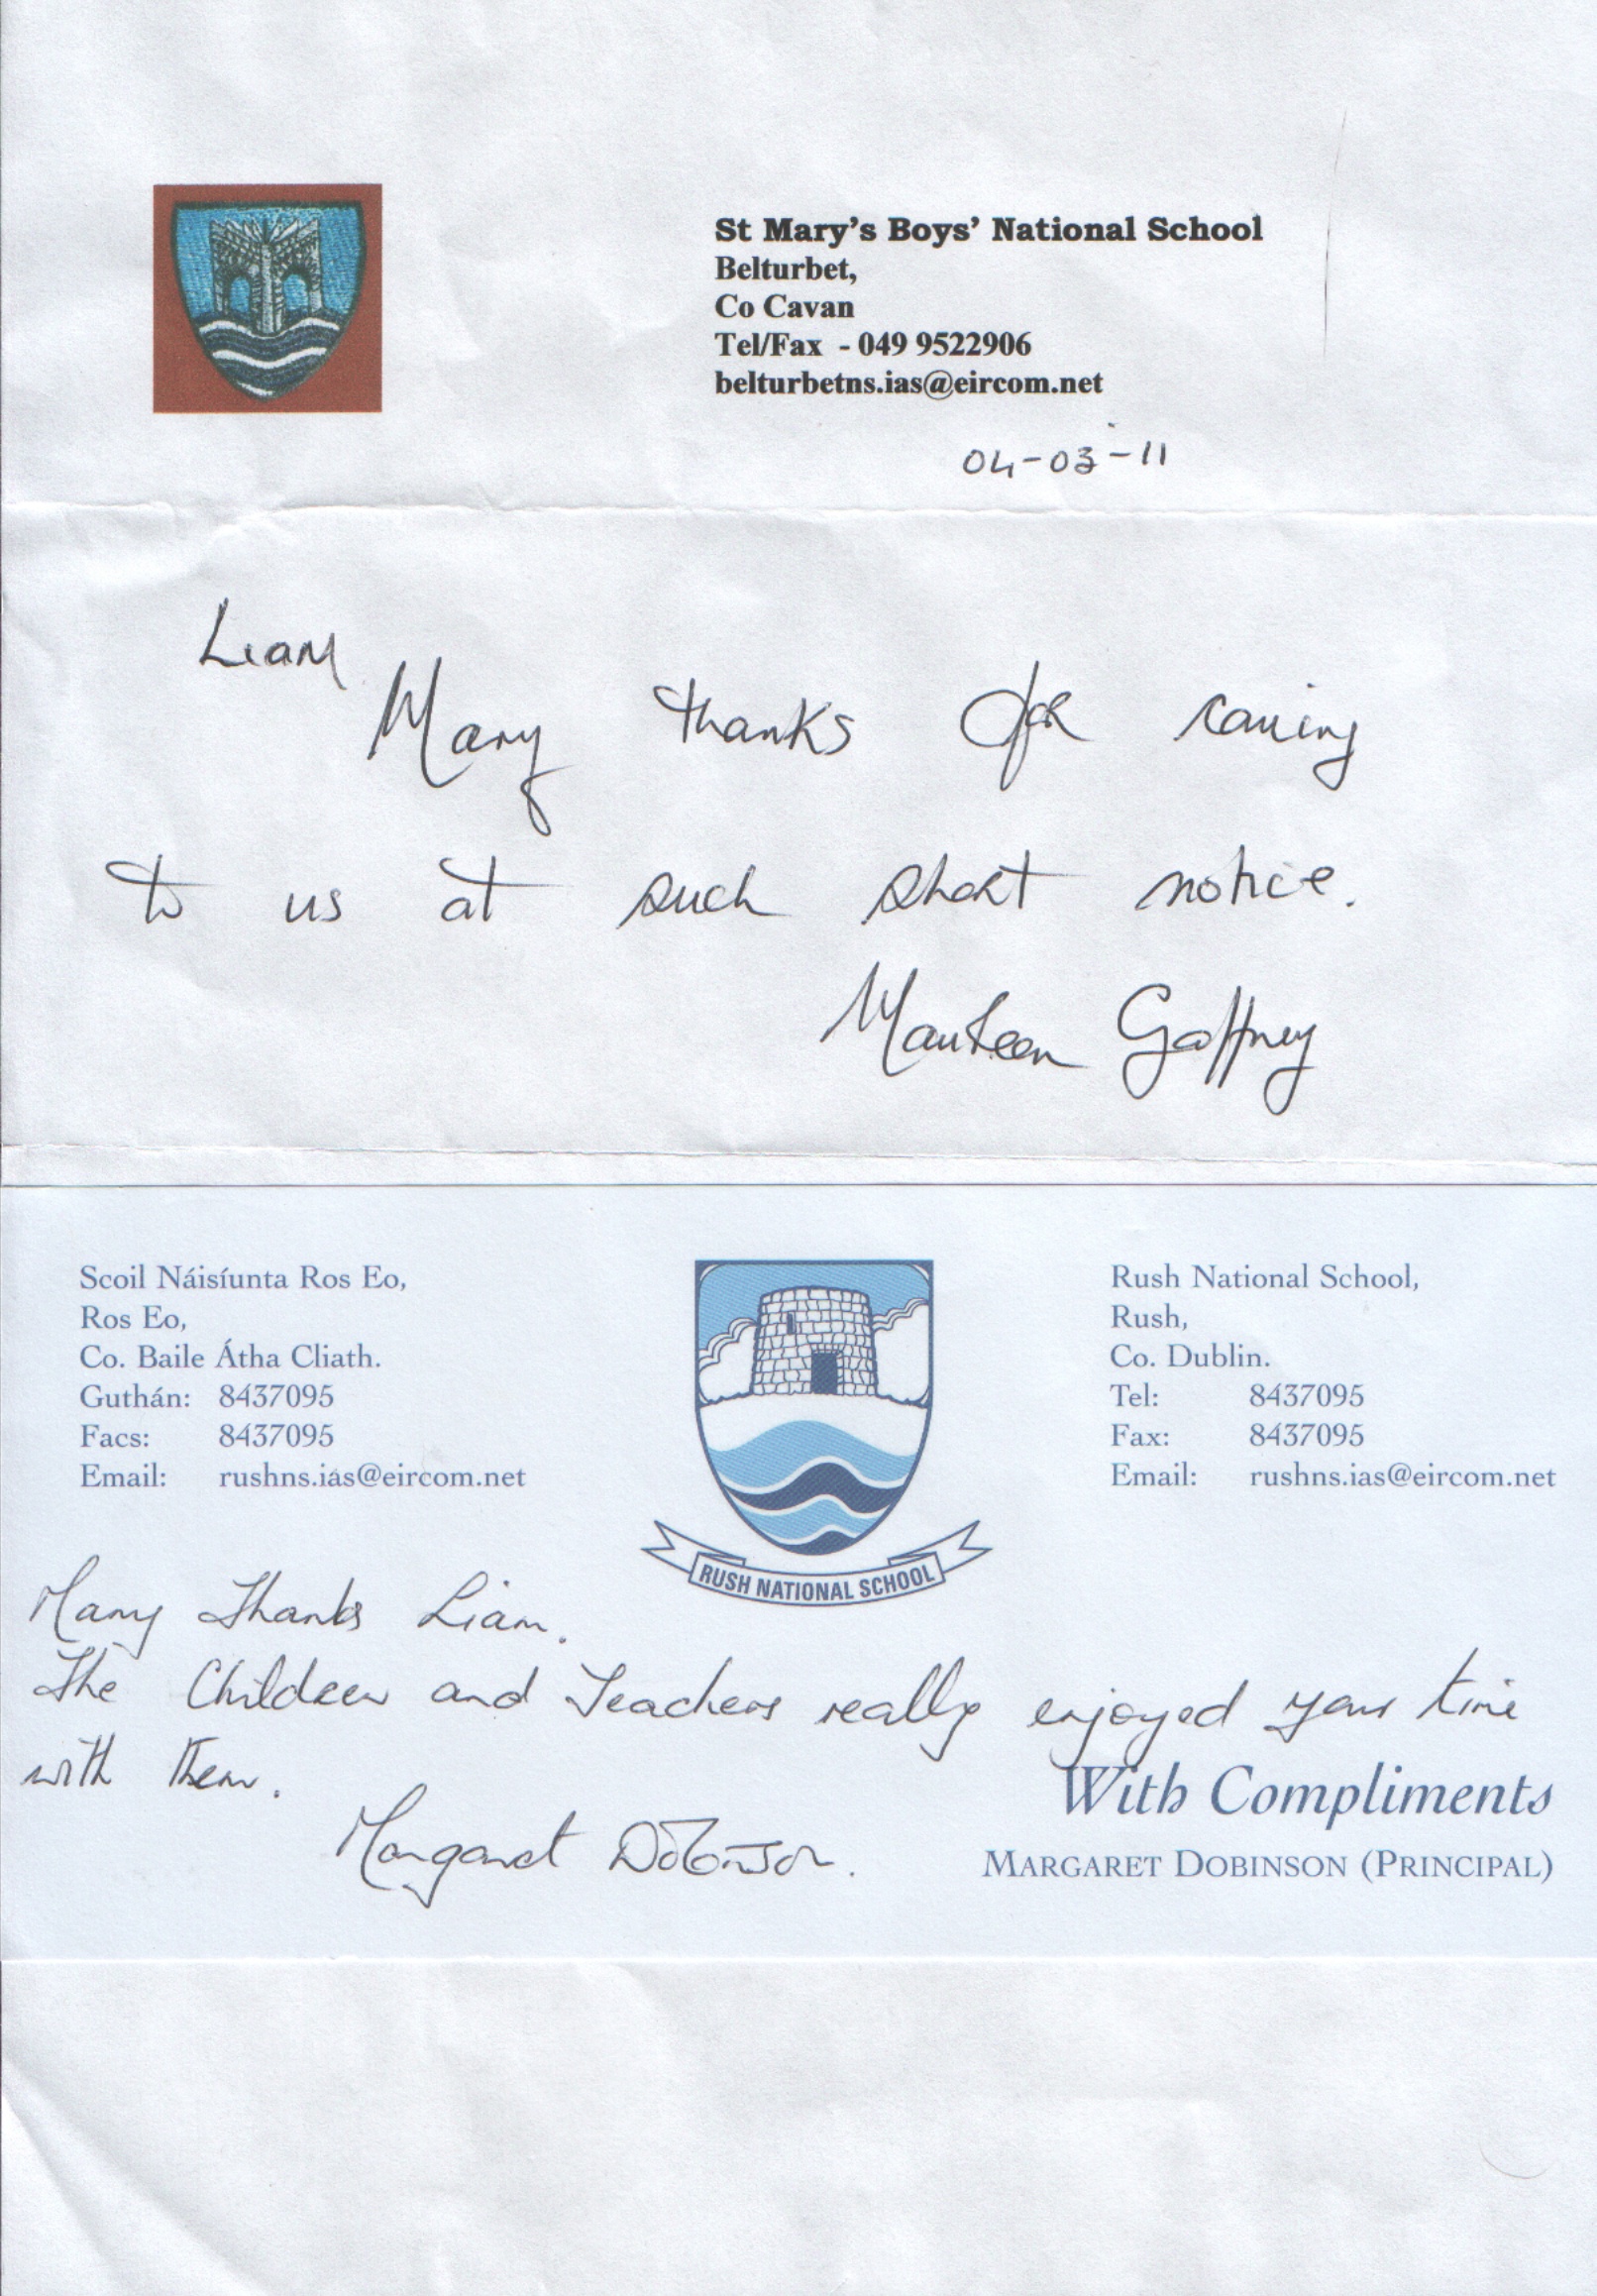 St Mary's Boys' National School
Belturbet,
Co Cavan
Tel/Fax - 049 9522906
belturbetns.ias@eircom.net
04-03-11
Liam
Many thanks for coming
to us at such short notice.
Maureen Gaffney
Scoil Náisíunta Ros Eo,
Ros Eo,
Co. Baile Átha Cliath.
Guthán: 8437095
Facs: 8437095
Email: rushns.ias@eircom.net
RUSH NATIONAL SCHOOL
Rush National School,
Rush,
Co. Dublin.
Tel: 8437095
Fax: 8437095
Email: rushns.ias@eircom.net
Many Thanks Liam.
The Children and Teachers really enjoyed your time
with them.
Margaret Dobinson.
With Compliments
MARGARET DOBINSON (PRINCIPAL)